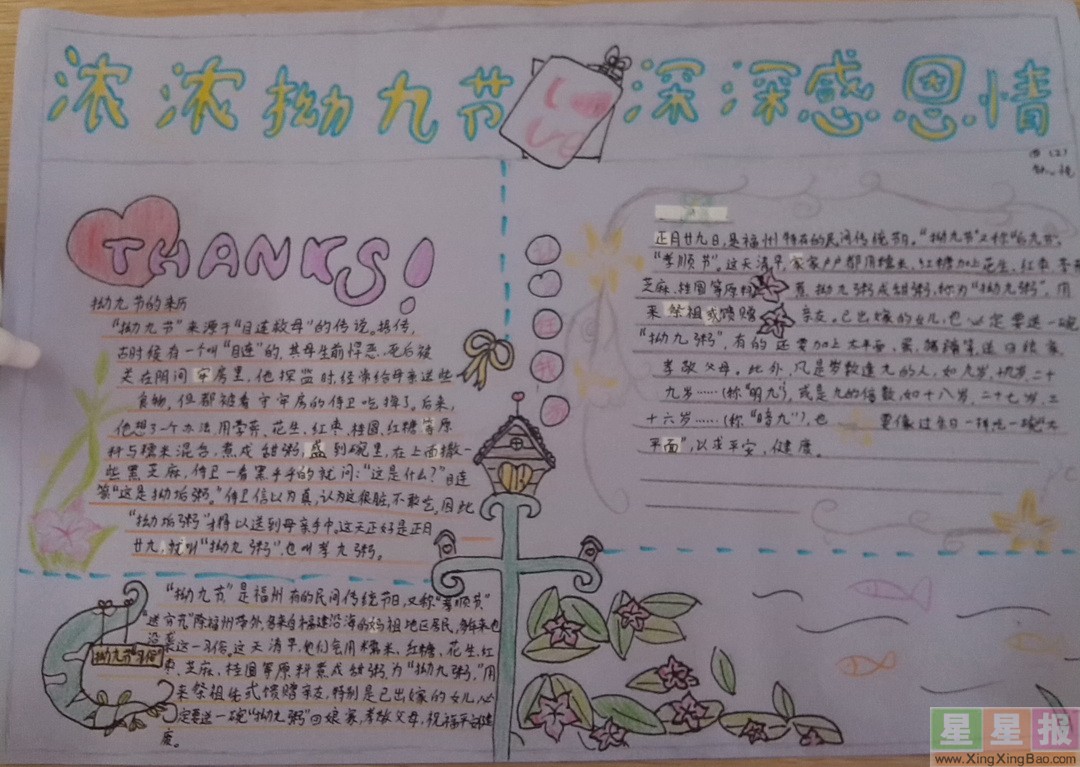 浓浓拗九节 深深感恩情
四（2）
THANKS!
拗九节的来历
"拗九节"来源于"目连救母"的传说。据传，
古时候有一个叫"目连"的，其母生前悍恶，死后被
关在阴间牢房里，他探监时，经常给母亲送些
食物，但都被看守牢房的侍卫吃掉了。后来，
他想了个办法用荸荠、花生、红枣、桂圆、红糖等原
料与糯米混合，煮成甜粥，盛到碗里，在上面撒一
些黑芝麻，侍卫一看黑乎乎的就问："这是什么？"目连
答"这是拗垢粥。"侍卫信以为真，认为这很脏，不敢吃。因此
"拗垢粥"才得以送到母亲手中。这天正好是正月
廿九，就叫"拗九粥"，也叫孝九粥。
我
正月廿九日，是福州特有的民间传统节日。"拗九节"又称"后九节"、
"孝顺节"。这天清早，家家户户都用糯米、红糖加上花生、红枣、荸荠、
芝麻、桂圆等原料，煮拗九粥成甜粥，称为"拗九粥"，用
来祭祖或馈赠亲友。已出嫁的女儿，也必定要送一碗
"拗九粥"，有的还要加上太平面、蛋、猪蹄等，送回娘家，
孝敬父母。此外，凡是岁数逢九的人，如九岁、十九岁、二十
九岁……（称"明九"），或是九的倍数，如十八岁、二十七岁、三
十六岁……（称"暗九"），也要像过生日一样吃一碗"太
平面"，以求平安、健康。
拗九节习俗
"拗九节"是福州有的民间传统节日，又称"孝顺节"
"送穷节"除福州等外，多来自福建沿海的妈祖地区居民，多年来也
沿袭这一习俗。这天清早，他们会用糯米、红糖、花生、红
枣、芝麻、桂圆等原料煮成甜粥，为"拗九粥。"用
来祭祖先或馈赠亲友，特别是已出嫁的女儿，必
定要送一碗"拗九粥"回娘家，孝敬父母，祝福平安健
康。
星星报
www.XingXingBao.com